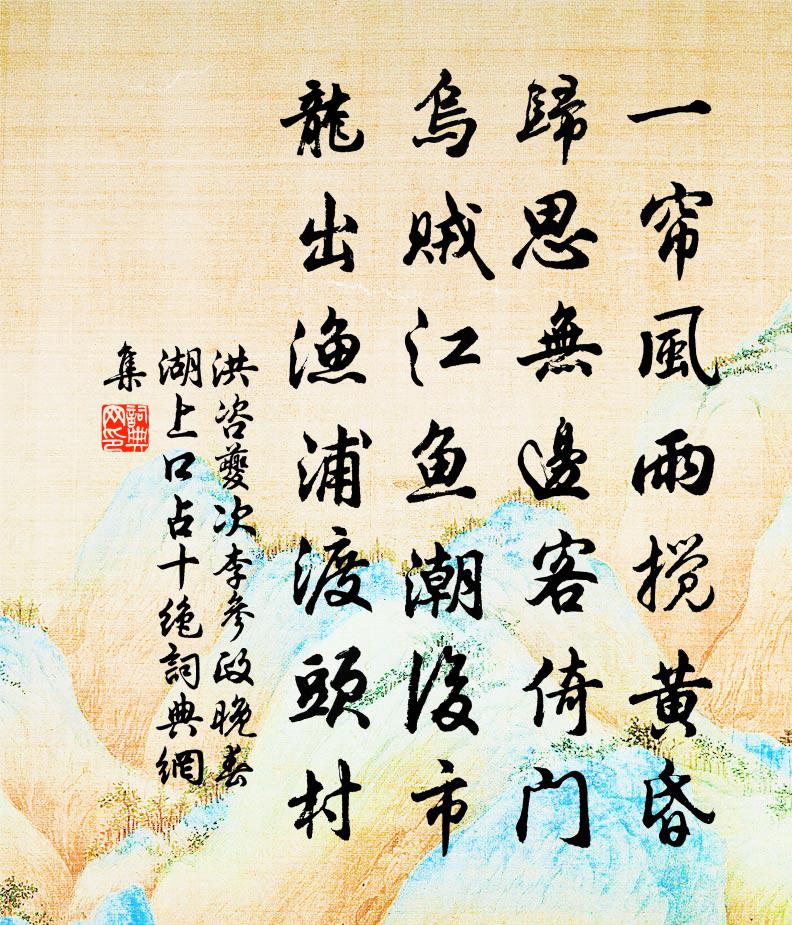 一帘風雨搅黄昏
歸思無邊客倚門
烏賊江鱼潮後市
龍出漁浦渡頭村
洪咨夔次李參政晚春
湖上口占十絶詞典網
集
詞典网印